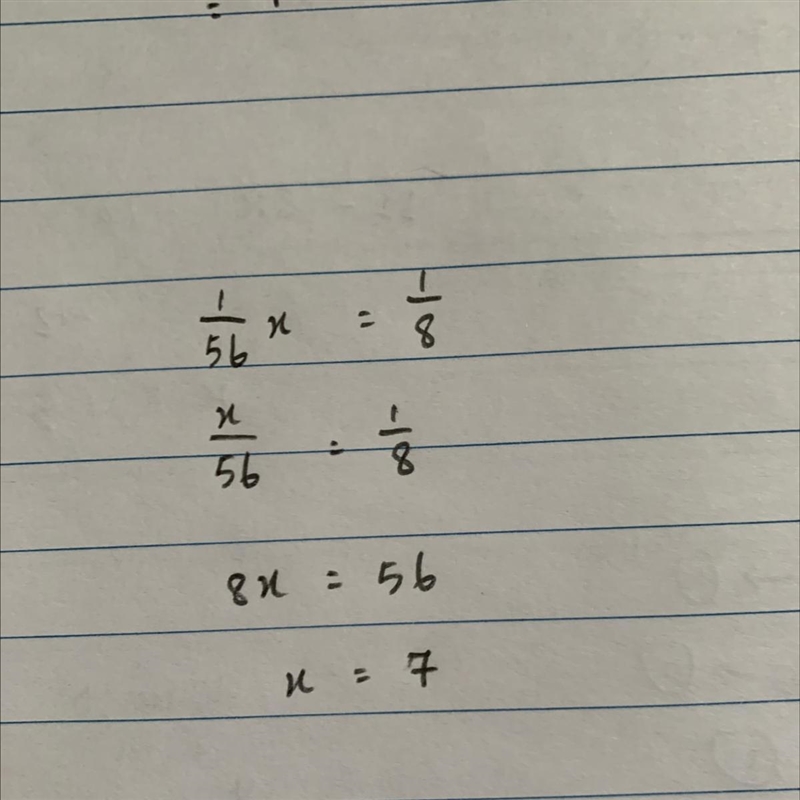 1/56 x = 1/8
x/56 = 1/8
8x = 56
x = 7